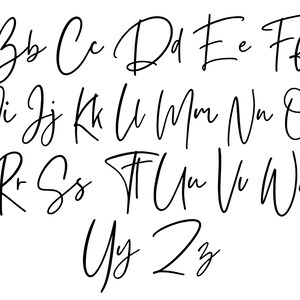 Bb Cc Dd Ee Ff
Ii Jj Kk Ll Mm Nn O
Rr Ss Tt Uu Vv W
Yy Zz